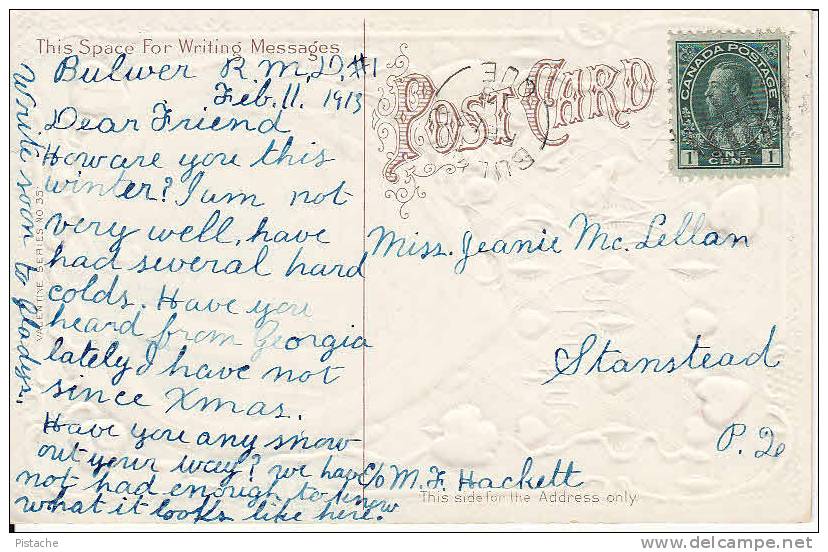 This Space For Writing Messages
Bulwer R.M.D. #1
Feb. 11. 1913
Dear Friend
How are you this
winter? I am not
very well, have
had several hard
colds. Have you
heard from Georgia
lately I have not
since Xmas.
Have you any snow
out your way? we have
not had enough to know
what it looks like here.
Write soon to Gladys..
VALENTINE SERIES NO 35
POST CARD
CANADA POSTAGE
1 ONE CENT 1
Miss. Jeanie Mc. Lellan
Stanstead
P. Q
c/o M. F. Hackett
This side for the Address only
Pistache
www.delcampe.net